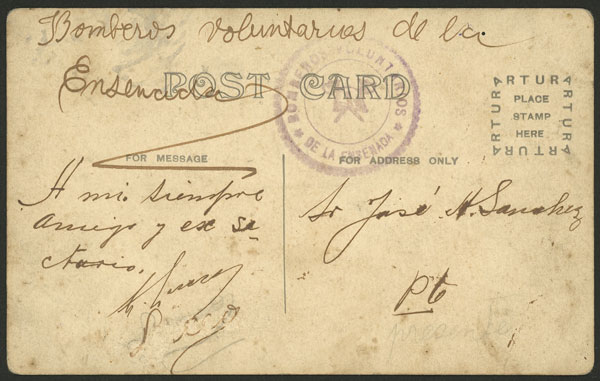 Bomberos voluntarios de la
Ensenada
POST CARD
BOMBEROS VOLUNTARIOS
DE LA ENSENADA
ARTURA
ARTURA
ARTURA
ARTURA
PLACE
STAMP
HERE
FOR MESSAGE
FOR ADDRESS ONLY
A mi siempre
Amigo y ex se
ctario,
Sr José N. Sanchez
Pte
presente